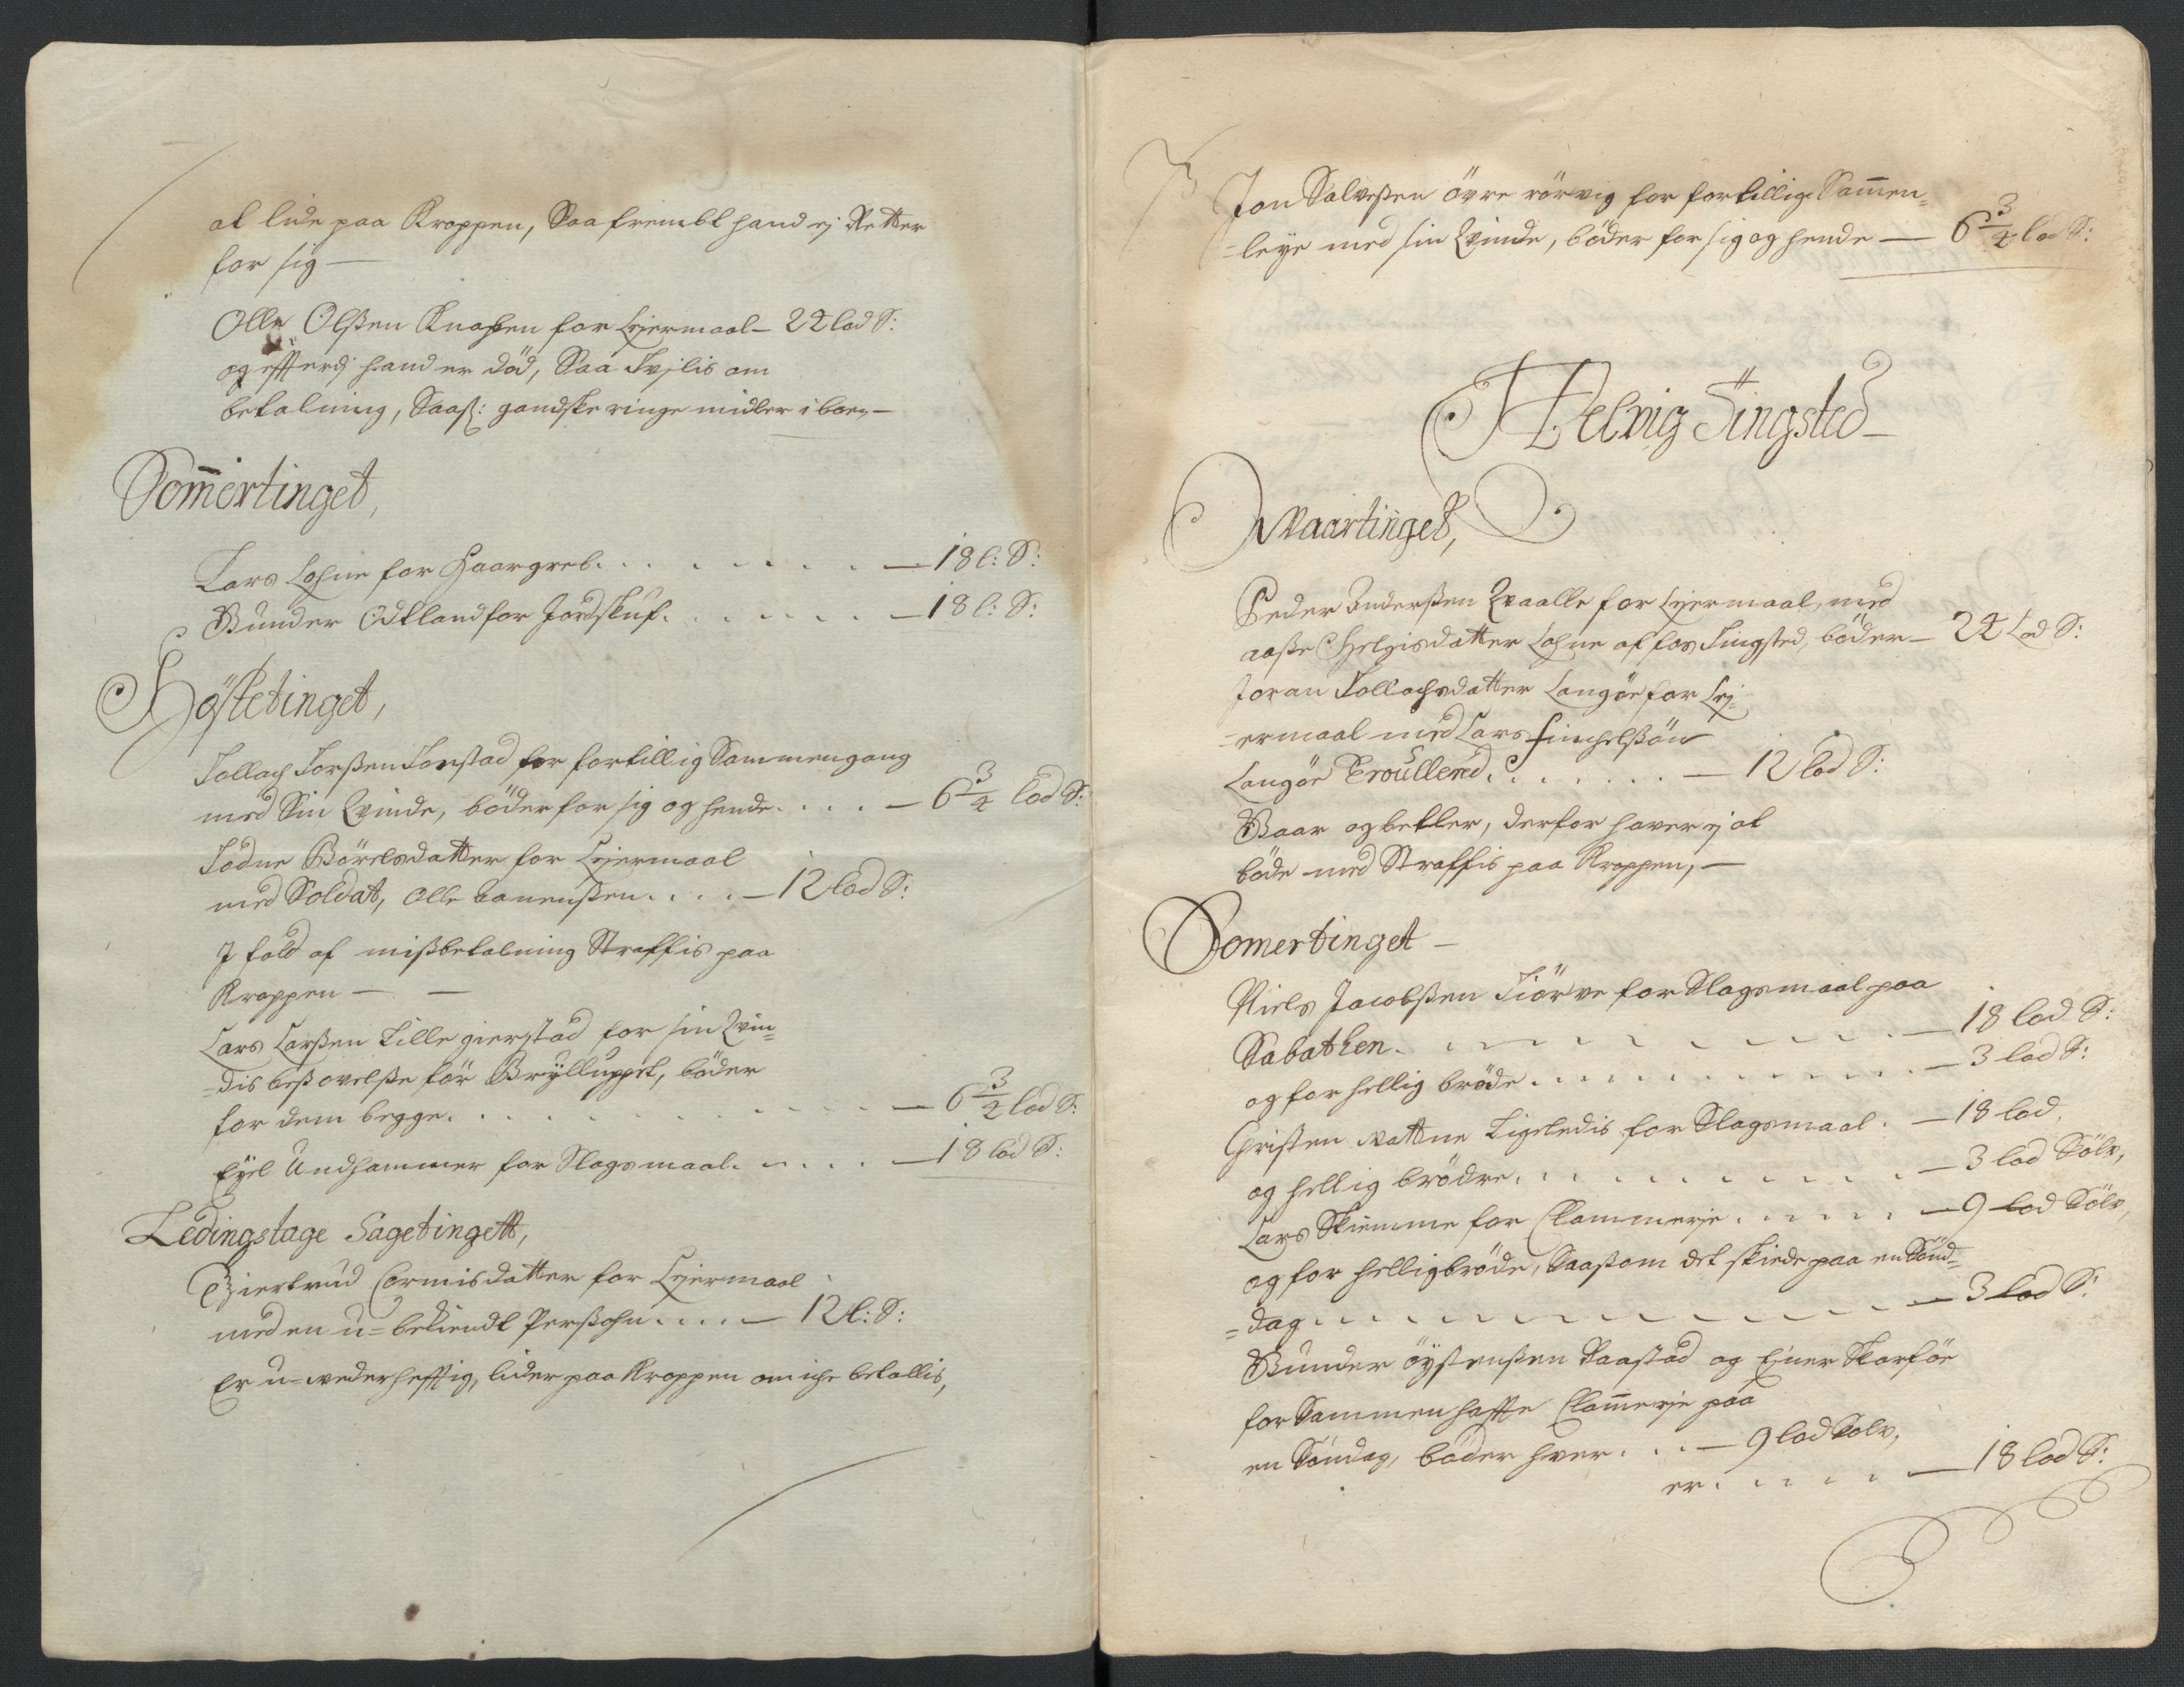 at lide paa Kroppen, Saafremt hand ej Retter
for sig —
Olle Olßen Knaben for Lejermaal — 24 lod S:
og efftersj hand er död, Saa Tvjlis om
betalning, Saaß: gandske ringe midler i boen —
Som̄ertinget,
Lars Lohne for Haargreb . . . — 18 l: S:
Gunder Odtland for Jordskuf . . . — 18 l: S:
Höstetinget,
Tollach Torßen Torstad for fortillig Sammengang
med Sin Qvinde, böder for sig og hende . . . — 6¾ lod S:
Todne Börelsdatter for Lejermaal
med Soldat, Olle . . . — 12 lod S:
J fald af mißbetalning Straffis paa
Kroppen — —
Lars Larßen Lille gierstad for sin Qvin=
=dis besovelße för Brÿlluppet, böder
for dem begge . . . — 6¾ lod S:
Eyel Undhammer for Slagsmaal . . . — 18 lod S:
Ledingstage Sagetingett,
Giertrud Gormisdatter for Lejermaal
med en u=bekiendt Perßohn . . . — 12 l: S:
Er u=vederhefftig, lider paa Kroppen om iche betallis,
Jon Salveßen övre rörvig for fortillig Sam̄en=
=leye med sin Qvinde, böder for sig og hende — 6¾ lod S:
Helvig Tingsted —
Waartinget,
Peder Anderßen Qvaalle for Lejermaal, med
aaße Helgisdatter Lohne af fos Tingsted, böder — 24 Lod S:
Joran Tollachsdatter Langöe for Lej=
=ermaal med Lars Finchelßön
Langöe Troullered . . . — 12 lod S:
Gaar og betler, derfor haver ej at
böde med Straffis paa Kroppen, —
Somertinget —
Niels Jacobßen Tiörve for Slagsmaal paa
Sabathen . . . — 18 lod S:
og for hellig bröde . . . — 3 lod S:
Christen Vattne Ligeledis for Slagsmaal . — 18 lod.
og hellig brödre . . . — 3 lod Sölv,
Lars Skiemme for Clammerje . . . — 9 lod Sölv,
og for helligbröde, Saaßom det skiede paa en Sönd=
=dag . . . — 3 lod S:
Gunder öystenßen Saastad og Ejner Skarföe
for Sammenhaffte Clam̄erje paa
en Söndag, böder hver . . . — 9 lod Solv,
er . . . — 18 lod S: